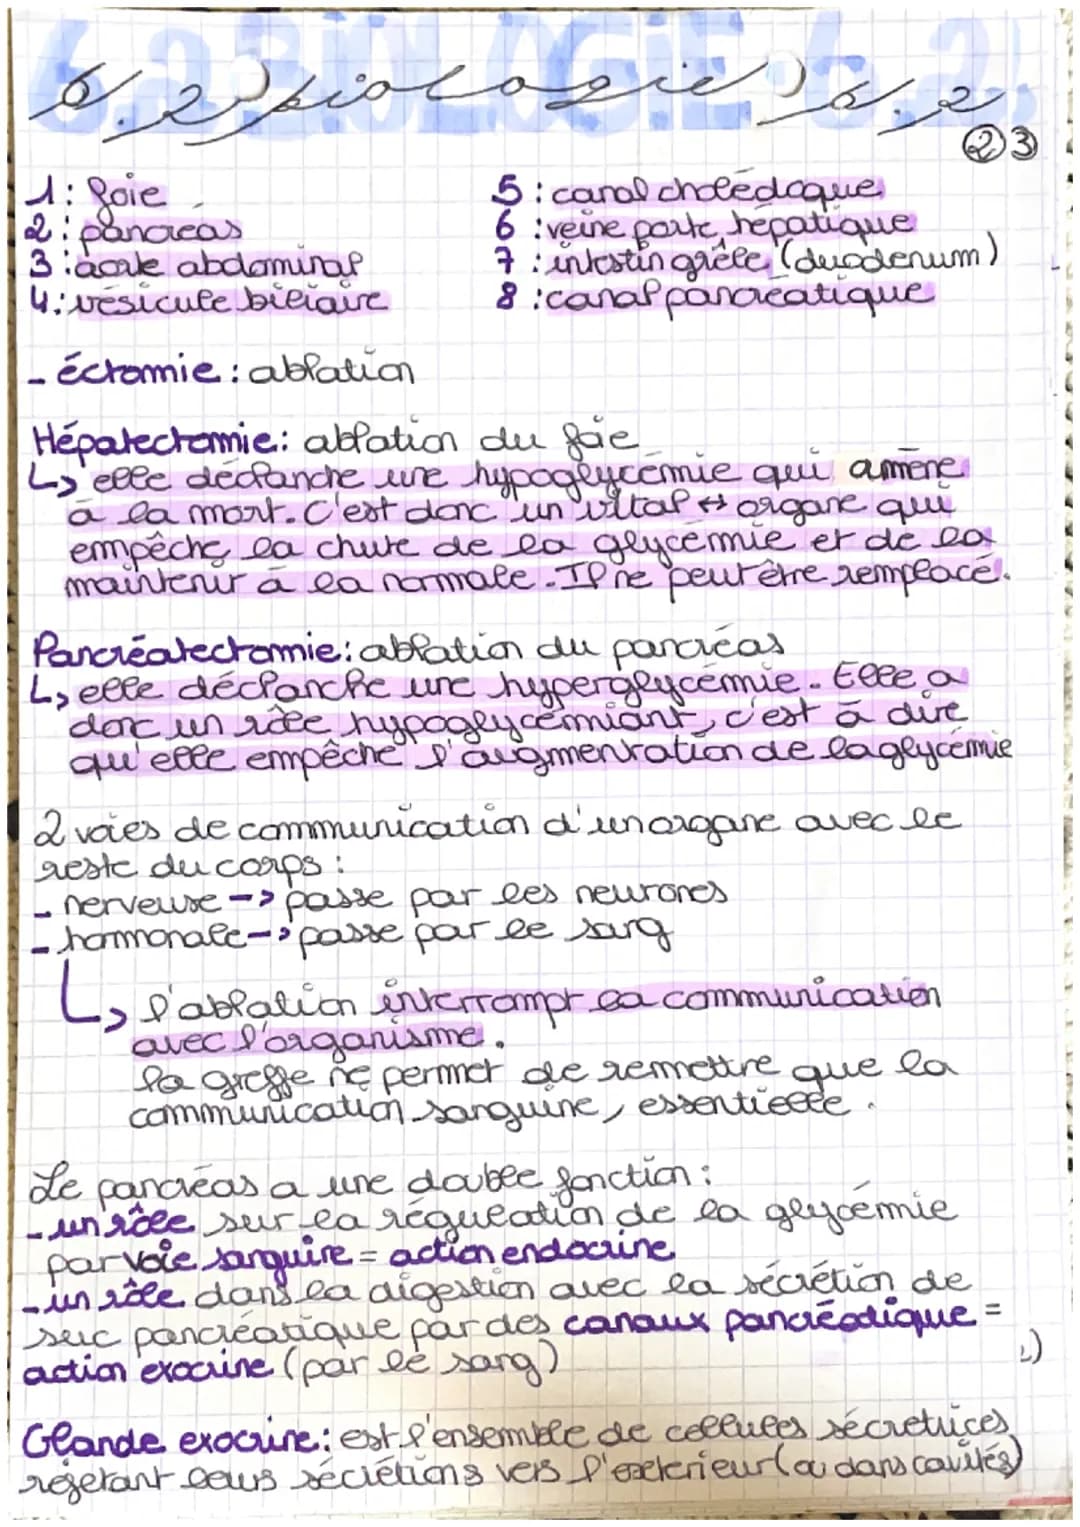 6.2 BIOLOGIE 6.2
6.2 biologie 6.2
23
1 : foie
2 : pancréas
3 : aorte abdominal
4 : vésicule biliaire
5 : canal cholédoque
6 : veine porte hépatique
7 : intestin grêle (duodenum)
8 : canal pancréatique
- éctomie : ablation
Hépatectomie : ablation du foie
↳ elle déclanche une hypoglycémie qui amène
à la mort. C'est donc un vital ↔ organe qui
empêche la chute de la glycémie et de la
maintenir à la normale. Il ne peut être remplacé.
Pancréatectomie : ablation du pancréas
↳ elle déclanche une hyperglycémie. Elle a
donc un rôle hypoglycémiant, c'est à dire
qu'elle empêche l'augmentation de la glycémie
2 voies de communication d'un organe avec le
reste du corps :
- nerveuse -> passe par les neurones
- hormonale -> passe par le sang
↳ l'ablation interrompt la communication
avec l'organisme.
la greffe ne permet de remettre que la
communication sanguine, essentielle.
Le pancréas a une double fonction :
- un rôle sur la régulation de la glycémie
par voie sanguine = action endocrine
- un rôle dans la digestion avec la sécrétion de
suc pancréatique par des canaux pancréatique =
action exocrine (par le sang)
Glande exocrine : est l'ensemble de cellules sécretrices
rejetant leurs sécrétions vers l'exterieur (ou dans cavités)